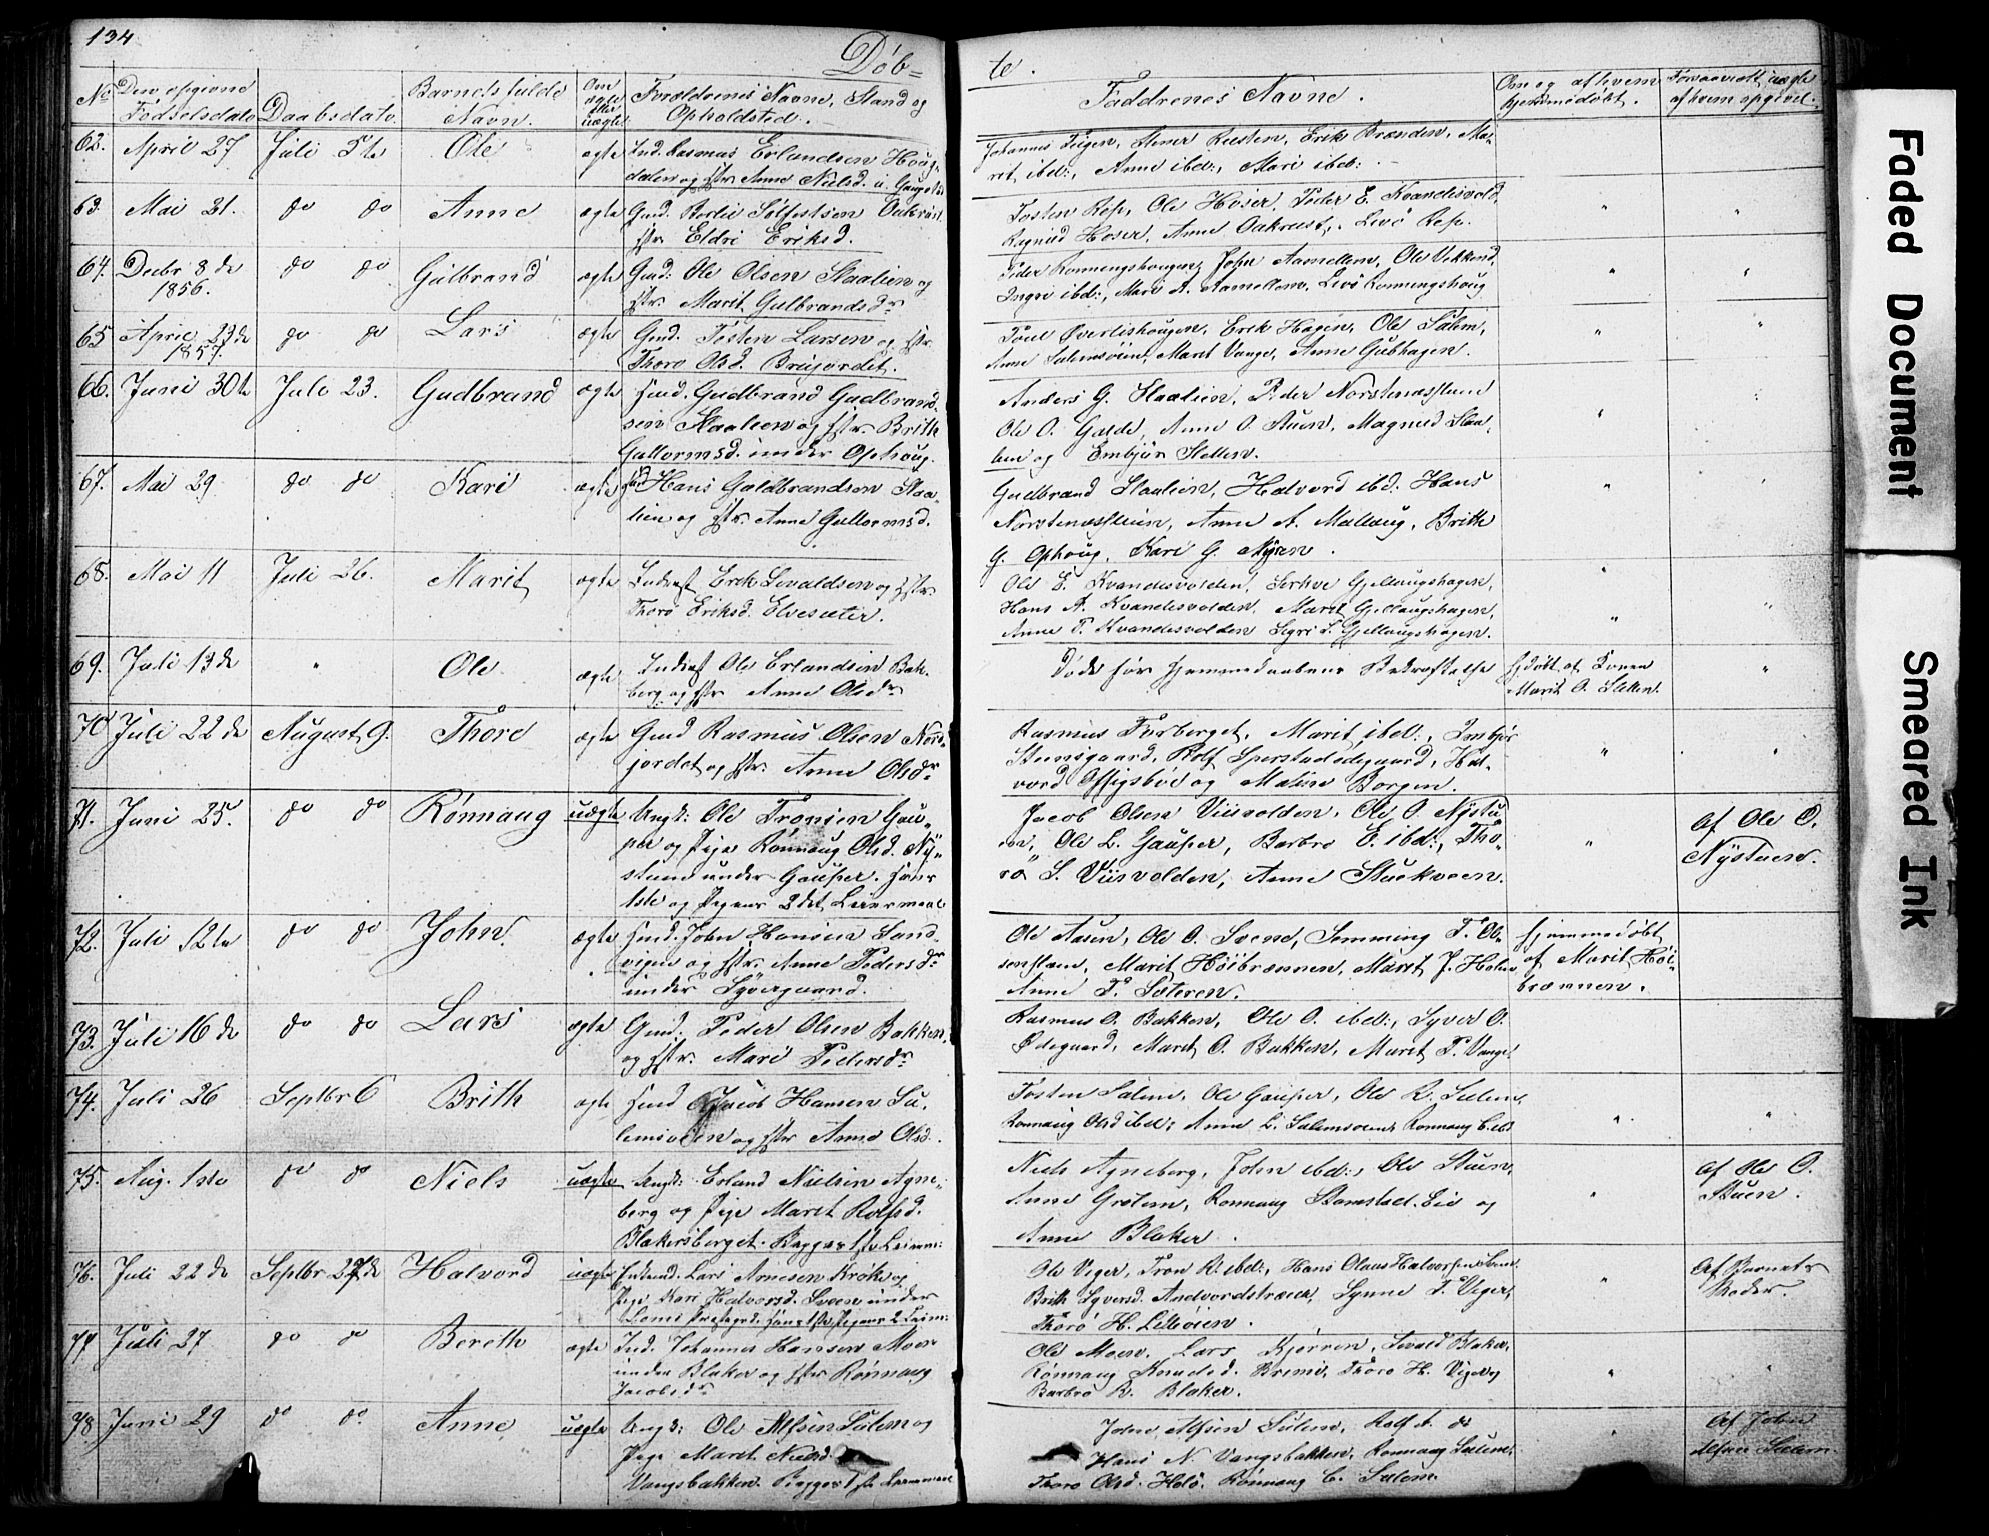 134
Døb=
te.
No
Den opgivne
Fødselsdato
Daabsdato.
Barnets fulde
Navn.
Om
ægte
eller
uægte
Forældrenes Navne, Stand og
Opholdsted.
Faddrenes Navne.
Om og af hvem
hjemmedøbt.
62. April 27 Juli 5te Ole ægte Ind. Rasmus Erlandsen Houg-
dalen og Hstr. Anne Nielsd. u. Gaupe
Johannes Teigen, Steener Rusten, Erik Brænden, Ma-
rit ibd:, Anne ibd:, Mari ibd:
63. Mai 31. do do Anne ægte Gmd. Bertil Solfestsen Aakrust
Hstr. Eldri Eriksd.
Tosten Rep, Ole Hoser, Peder E. Kvandesvold,
Ragnild Hoser, Anne Aakrust, Livö Rep.
64. Decbr 8de
1856.
do do Gulbrand ægte Gmd: Ole Olsen Slaalien og
Hstr. Marit Gulbrandsdr
Peder Rønningshougen, John Aamellem, Ole Vekkend,
Ingri ibd:, Mari A. Aamellem, Livö Rønningshoug
65 April 23de
1857.
do do Lars ægte Gmd. Tosten Larsen og Hstr.
Thorø Olsd. Brujordet.
Poul Øverlishougen, Erik Hagen, Ole Sulem,
Anne Sulemsöien, Marit Vange, Anne Gubhagen.
66. Juni 30te Juli 23. Gudbrand ægte Hmd. Gudbrand Gudbrand-
sen Slaalien og Hstr. Brith
Guttormsd. under Ophoug.
Anders G. Slaalien, Peder Norstenæsflein
Ole O. Galde, Anne O. Stuen, Magnild Slaa-
lien og Embjør Sletten.
67. Mai 29 do do Kari ægte Hmd Hans Guldbrandsen Slaa-
lien og Hstr. Anne Guttormsd.
Gudbrand Slaalien, Halvord ibd: Hans
Norstenæsflein, Anne A. Mellaug, Brith
G. Ophoug, Kari G. Myren.
68. Mai 11 Juli 26. Marit ægte Inderst Erik Sevaldsen og Hstr.
Thorø Eriksd. Elvesæter.
Ole E. Kvandesvolden, Serkve Gjellaugshagen,
Hans A. Kvandesvolden, Marit Gjellaugshagen,
Anne P. Kvandesvolden Segri S. Gjellaugshagen.
69. Juli 13de " Ole ægte Inderst Ole Erlandsen Bak-
berg og Hstr Anne Olsdr
Døde før Hjemmedaabens Bekræftelse
Hjdøbt af Konen
Marit O. Sletten.
70 Juli 22de August 9. Thore ægte Gmd Rasmus Olsen Nord-
jordet og Hstr. Anne Olsdr
Rasmus Furberget, Marit ibd:, Embjør
Steensgaard, Rolf Sperstadødegaard, Hal-
vord Offigsböe og Marie Borgen.
71. Juni 25. do do Rønnaug uægte Ungk: Ole Tronsen Gau-
per og Pige Rønnaug Olsd. Ny-
stuen under Gauper. Hans
1ste og Pigens 2det Leiermaal
Jacob Olsen Viisvolden, Ole O. Nystu-
en, Ole L. Gauper, Barbro E. ibd:, Tho-
rø S. Viisvolden, Anne Stuekveen.
Af Ole O.
Nystuen.
72. Juli 12te do do John. ægte Hmd. John Hansen Sand-
vigen og Hstr. Anne Pedersdr
under Syvergaard.
Ole Aasen, Ole O. Svene, Semming T. Ol-
Marit Høibrænnen, Marit J. Holen
Anne P. Sæteren.
Hjemmedøbt
af Marit Høi-
brænnen.
73. Juli 16de do do Lars ægte Gmd. Peder Olsen Bakken,
og Hstr. Mari Pedersdr
Rasmus O. Bakken, Ole O. ibd:, Syver O.
Ødegaard, Marit O. Bakken, Marit P. Vange
74. Juli 26 Septbr 6 Brith ægte Hmd Jacob Hansen Su-
lemsveen og Hstr Anne Olsd.
Tosten Sulem, Ole Gauper, Ole R. Sulem
Rønnaug Olsd ibd: Anne L. Sulemsveen Rønnaug E. ibd
75. Aug. 1ste do do Niels uægte Ungk: Erland Nielsen Agne-
berg og Pige Marit Rolfsd.
Blakersberget. Begges 1ste Leierm:
Niels Agneberg, John ibd:, Ole Stuen,
Anne Grotem, Rønnaug Stamstad. Eie og
Anne Blaker.
Af Ole O.
Stuen.
76. Juli 22de Septbr 27de Halvord uægte Enkemd. Lars Arnesen Krøke og
Pige Kari Halvorsd. Sveen under
Loms Prestegrd. Hans 1ste Pigens 2 Leierm:
Ole Viger, Tron R. ibd:, Hans Olaus Halvorsen Sveen
Brith Syversd. Andvordstræet, Synne P. Viger,
Thorø H. Lilleöien.
Af Barnets
Moder.
77 Juli 27 do do Bereth ægte Ind. Johannes Hansen Moen
under Blaker og Hstr Rønnaug
Jacobsdr
Ole Moen, Lars Kjørren, Sevald Blaker,
Rønnaug Knudsd. Bremi, Thore H. Viger og
Barbro R. Blaker.
78. Juni 29 do do Anne uægte Ungk: Ole Alfsen Sulem og
Pige Marit Nielsd.
Vangsbakken. Begges 1ste Leiermaal
John Alfsen Sulem, Rolf A. do
Hans N. Vangsbakken, Rønnaug Sulem,
Thorø Olsd. Holö, Rønnaug E. Sulem.
Af John
Alfsen Sulem.
Faded Document
Smeared Ink